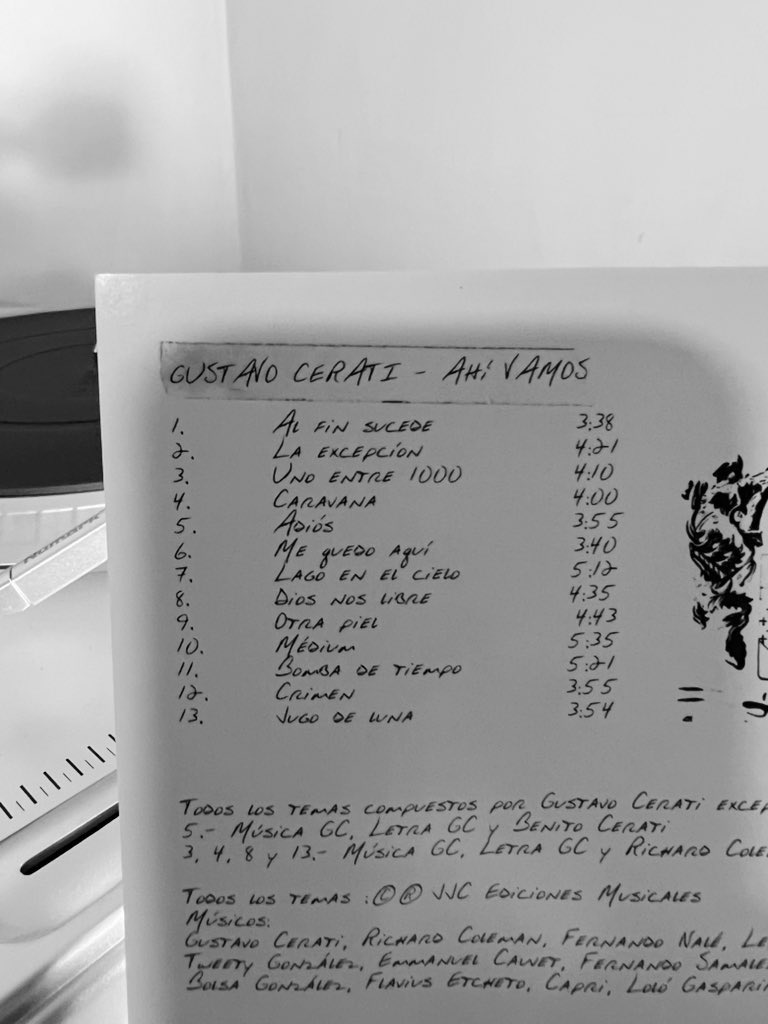 GUSTAVO CERATI - AHÍ VAMOS
1. AL FIN SUCEDE 3:38
2. LA EXCEPCIÓN 4:21
3. UNO ENTRE 1000 4:10
4. CARAVANA 4:00
5. ADIÓS 3:55
6. ME QUEDO AQUÍ 3:40
7. LAGO EN EL CIELO 5:12
8. DIOS NOS LIBRE 4:35
9. OTRA PIEL 4:43
10. MÉDIUM 5:35
11. BOMBA DE TIEMPO 5:21
12. CRIMEN 3:55
13. JUGO DE LUNA 3:54
Numark
TODOS LOS TEMAS COMPUESTOS POR GUSTAVO CERATI EXCEP
5.- MÚSICA GC, LETRA GC Y BENITO CERATI
3, 4, 8 Y 13.- MÚSICA GC, LETRA GC Y RICHARD COLE
TODOS LOS TEMAS :©® JJC EDICIONES MUSICALES
MÚSICOS:
GUSTAVO CERATI, RICHARD COLEMAN, FERNANDO NALÉ, LE
TWEETY GONZÁLEZ, EMMANUEL CAUVET, FERNANDO SAMALE
BOLSA GONZÁLEZ, FLAVIUS ETCHETO, CAPRI, LOLÓ GASPARIN